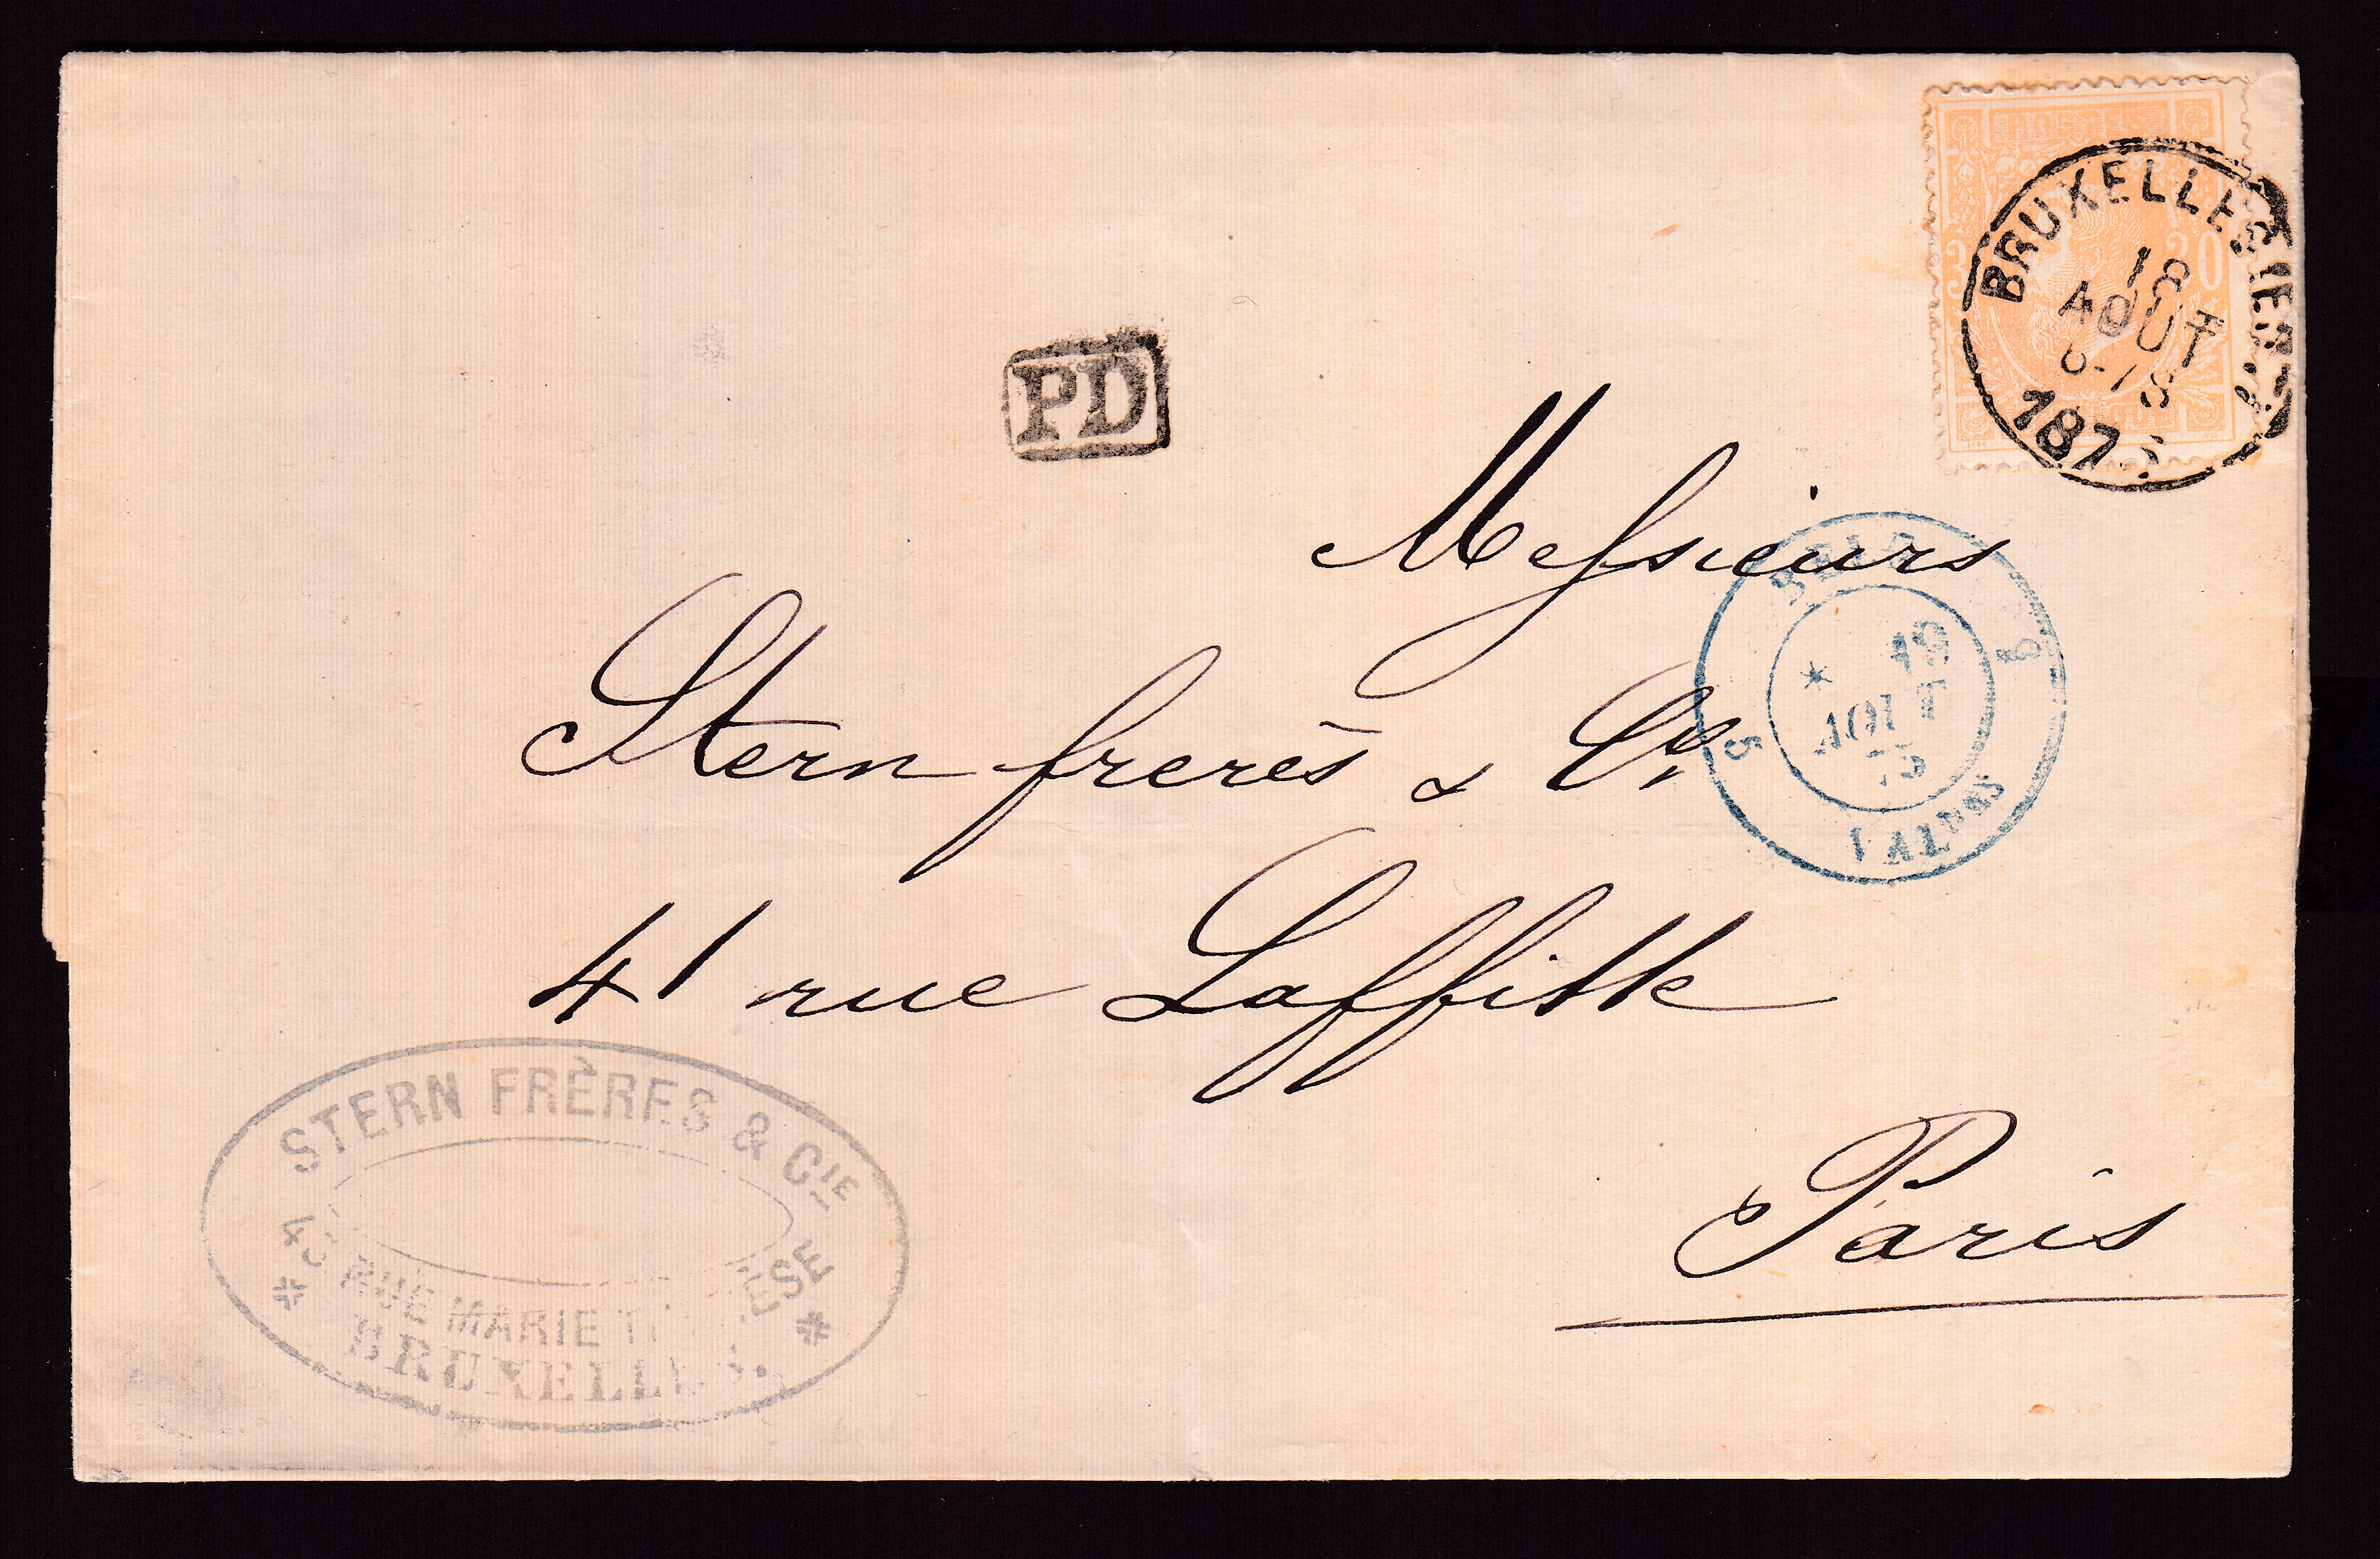 POSTES
30
BRUXELLES
18
AOUT
6-7S
187
PD
Messieurs
Stern frerès & Cie
41 rue Laffitte
Paris
BELG
19
AOUT
75
5
VALnes
STERN FRÈRES & CIE
RUE MARIE
BRUXELLES.